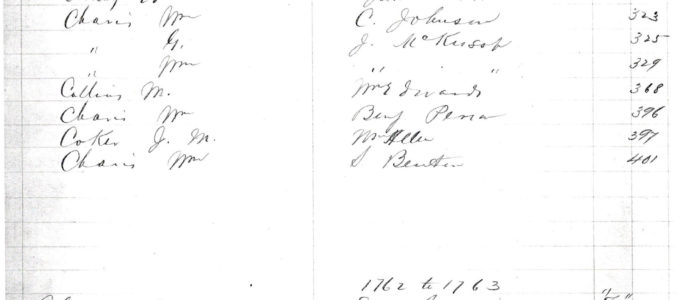 Charis Wm C. Johnson 323
" G. J. McKissop 325
" Wm " " 329
Collins M. Wm Edwards 368
Charis Wm Benj 396
Coker J. M. Wm Allen 397
Charis Wm S Benton 401
1762 to 1763